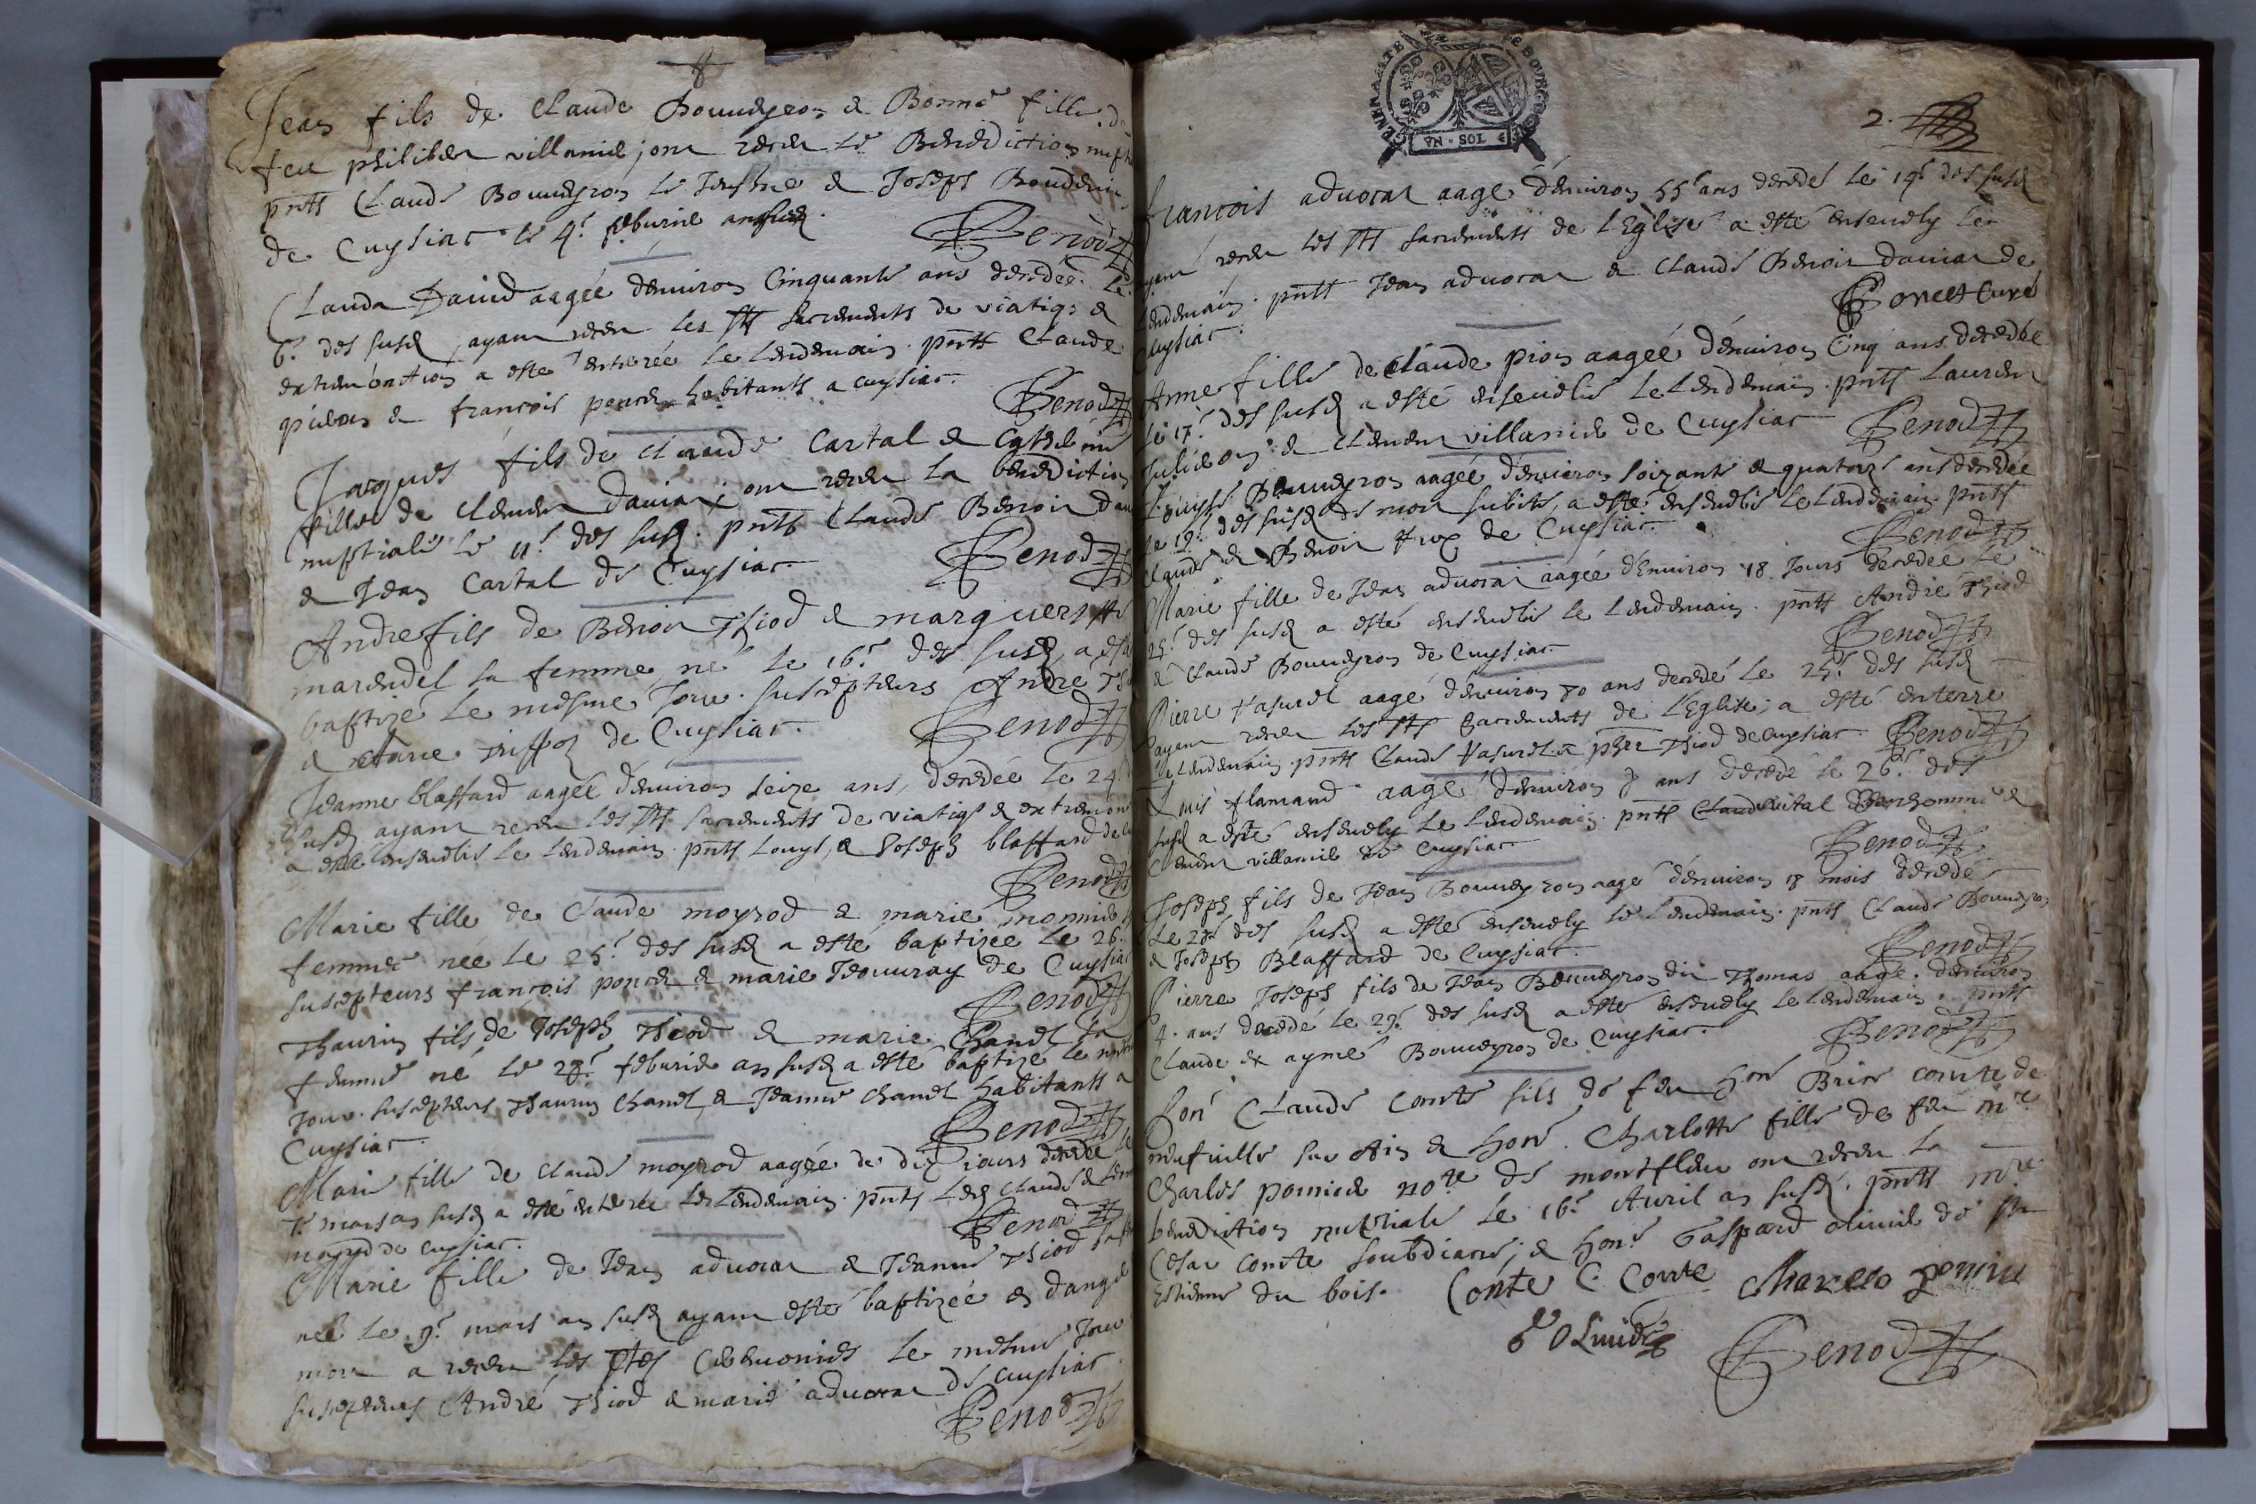 Jean fils de Claude Bouveyron & Bonne fille de
feu philiber villanie; ont receu le Benediction nupt
pnts Claude Bouveyron le Jeusne & Joseph
de Cuysiac le 4e feburie an susd.
Benod
Clauda David aagée denviron Cinquante ans decedée le
6e des susd ayant receu les sts sacrements de viatiq &
extremonction a esté enterrée le lendemain. pnts Claude
& françois poncet habitants a cuysiac.
Benod
Jacques fils de Claude Cartal &
fille de clement ont receu la benediction
nuptiale le 11e des susd. pnts Claude Benoit
& Jean Cartal de Cuysiac
Benod
Andre fils de Benoit Thiod & margueritte
marendel sa femme né le 16e des susd, a esté
baptizé le mesme Jour. suscepteurs Andre
& de Cuysiac.
Benod
Jeanne blaffard aagée denviron seize ans, decedée le 24
susd ayant receu les sts sacrements de viatiq & extremon
a esté ensevelie le lendemain pnts Louys, & Joseph blaffard de
Benod
Marie fille de Claude moyrod & marie
femme née le 25e des susd a esté baptizée le 26
suscepteurs françois poncet & marie Jeouvray de Cuysiac
Benod
Thaurin fils de Joseph Thiod & marie Chanel sa
femme né le 28e feburie an susd a esté baptizé le
Jour. suscepteurs Thaurin Chanel, & Jeanne Chanel habitants a
Cuysiac.
Benod
Marie fille de Claude moyrod aagée de dix jours decedée le
7e mars an susd a esté enterrée le lendemain. pnts Led Claude &
moyrod de cuysiac.
Benod
Marie fille de Jean advocat & Jeanne Thiod sa
née le 9e mars an susd ayant esté baptizée en danger
mort a receu les ceremonies le mesme Jour
suscepteurs André Thiod & marie advocat de Cuysiac.
Benod
GENERALITE DE BOURGOGNE
VN · SOL
2.
francois advocat aagé denviron 55 ans decedé le 14e des susd
ayant receu les sts sacrements de l'Eglise a esté ensevely le
lendemain. pnts Jean advocat & Claude Benoit de
Cuysiac.
Curé
Anne fille de Claude pion aagée denviron Cinq ans decedée
le 17e des susd a esté ensevelie le lendemain. pnts Laurent
& clement villanie de Cuysiac
Benod
Louyse Bouveyron aagée denviron soixante & quatorze ans decedée
le 19e des susd de mort subite, a esté ensevelie le lendemain pnts
Claude & Benoit de Cuysiac.
Benod
Marie fille de Jean advocat aagée denviron 18 Jours decedée le
25e des susd a esté ensevelie le lendemain. pnts André Thiod
& Claude Bouveyron de Cuysiac
Benod
Pierre Vasurel aagé denviron 70 ans decedé le 25e des susd
ayant receu les sts sacrements de l'Eglise; a esté enterré
le lendemain. pnts Claude Vasurel & Thiod de Cuysiac
Benod
Louis flamand aagé denviron ans decedé le 26e des
susd a esté ensevely le lendemain. pnts Claude vital Bonhomme &
Clement villanie de Cuysiac
Benod
Joseph fils de Jean Bouveyron aagé denviron 18 mois decedé
Le 28e des susd a esté ensevely le lendemain. pnts Claude Bouveyron
& Joseph Blaffard de Cuysiac.
Benod
Pierre Joseph fils de Jean Bouveyron dit Thomas aagé denviron
4. ans decedé le 29e des susd a esté ensevely le lendemain. pnts
Claude & aymé Bouveyron de Cuysiac.
Benod
hon Claude Comte fils de feu hon Brice comte de
neufville sur Ain & hon Charlotte fille de feu me
Charles pomier nore de montfleur ont receu la
benediction nuptiale le 16e Avril an susd. pnts mre
Cesar Comte soubdiacre; & hon Gaspard olivier de St
Estienne du bois.
Conte C. Comte Charlo pomier
G Olivier
Benod